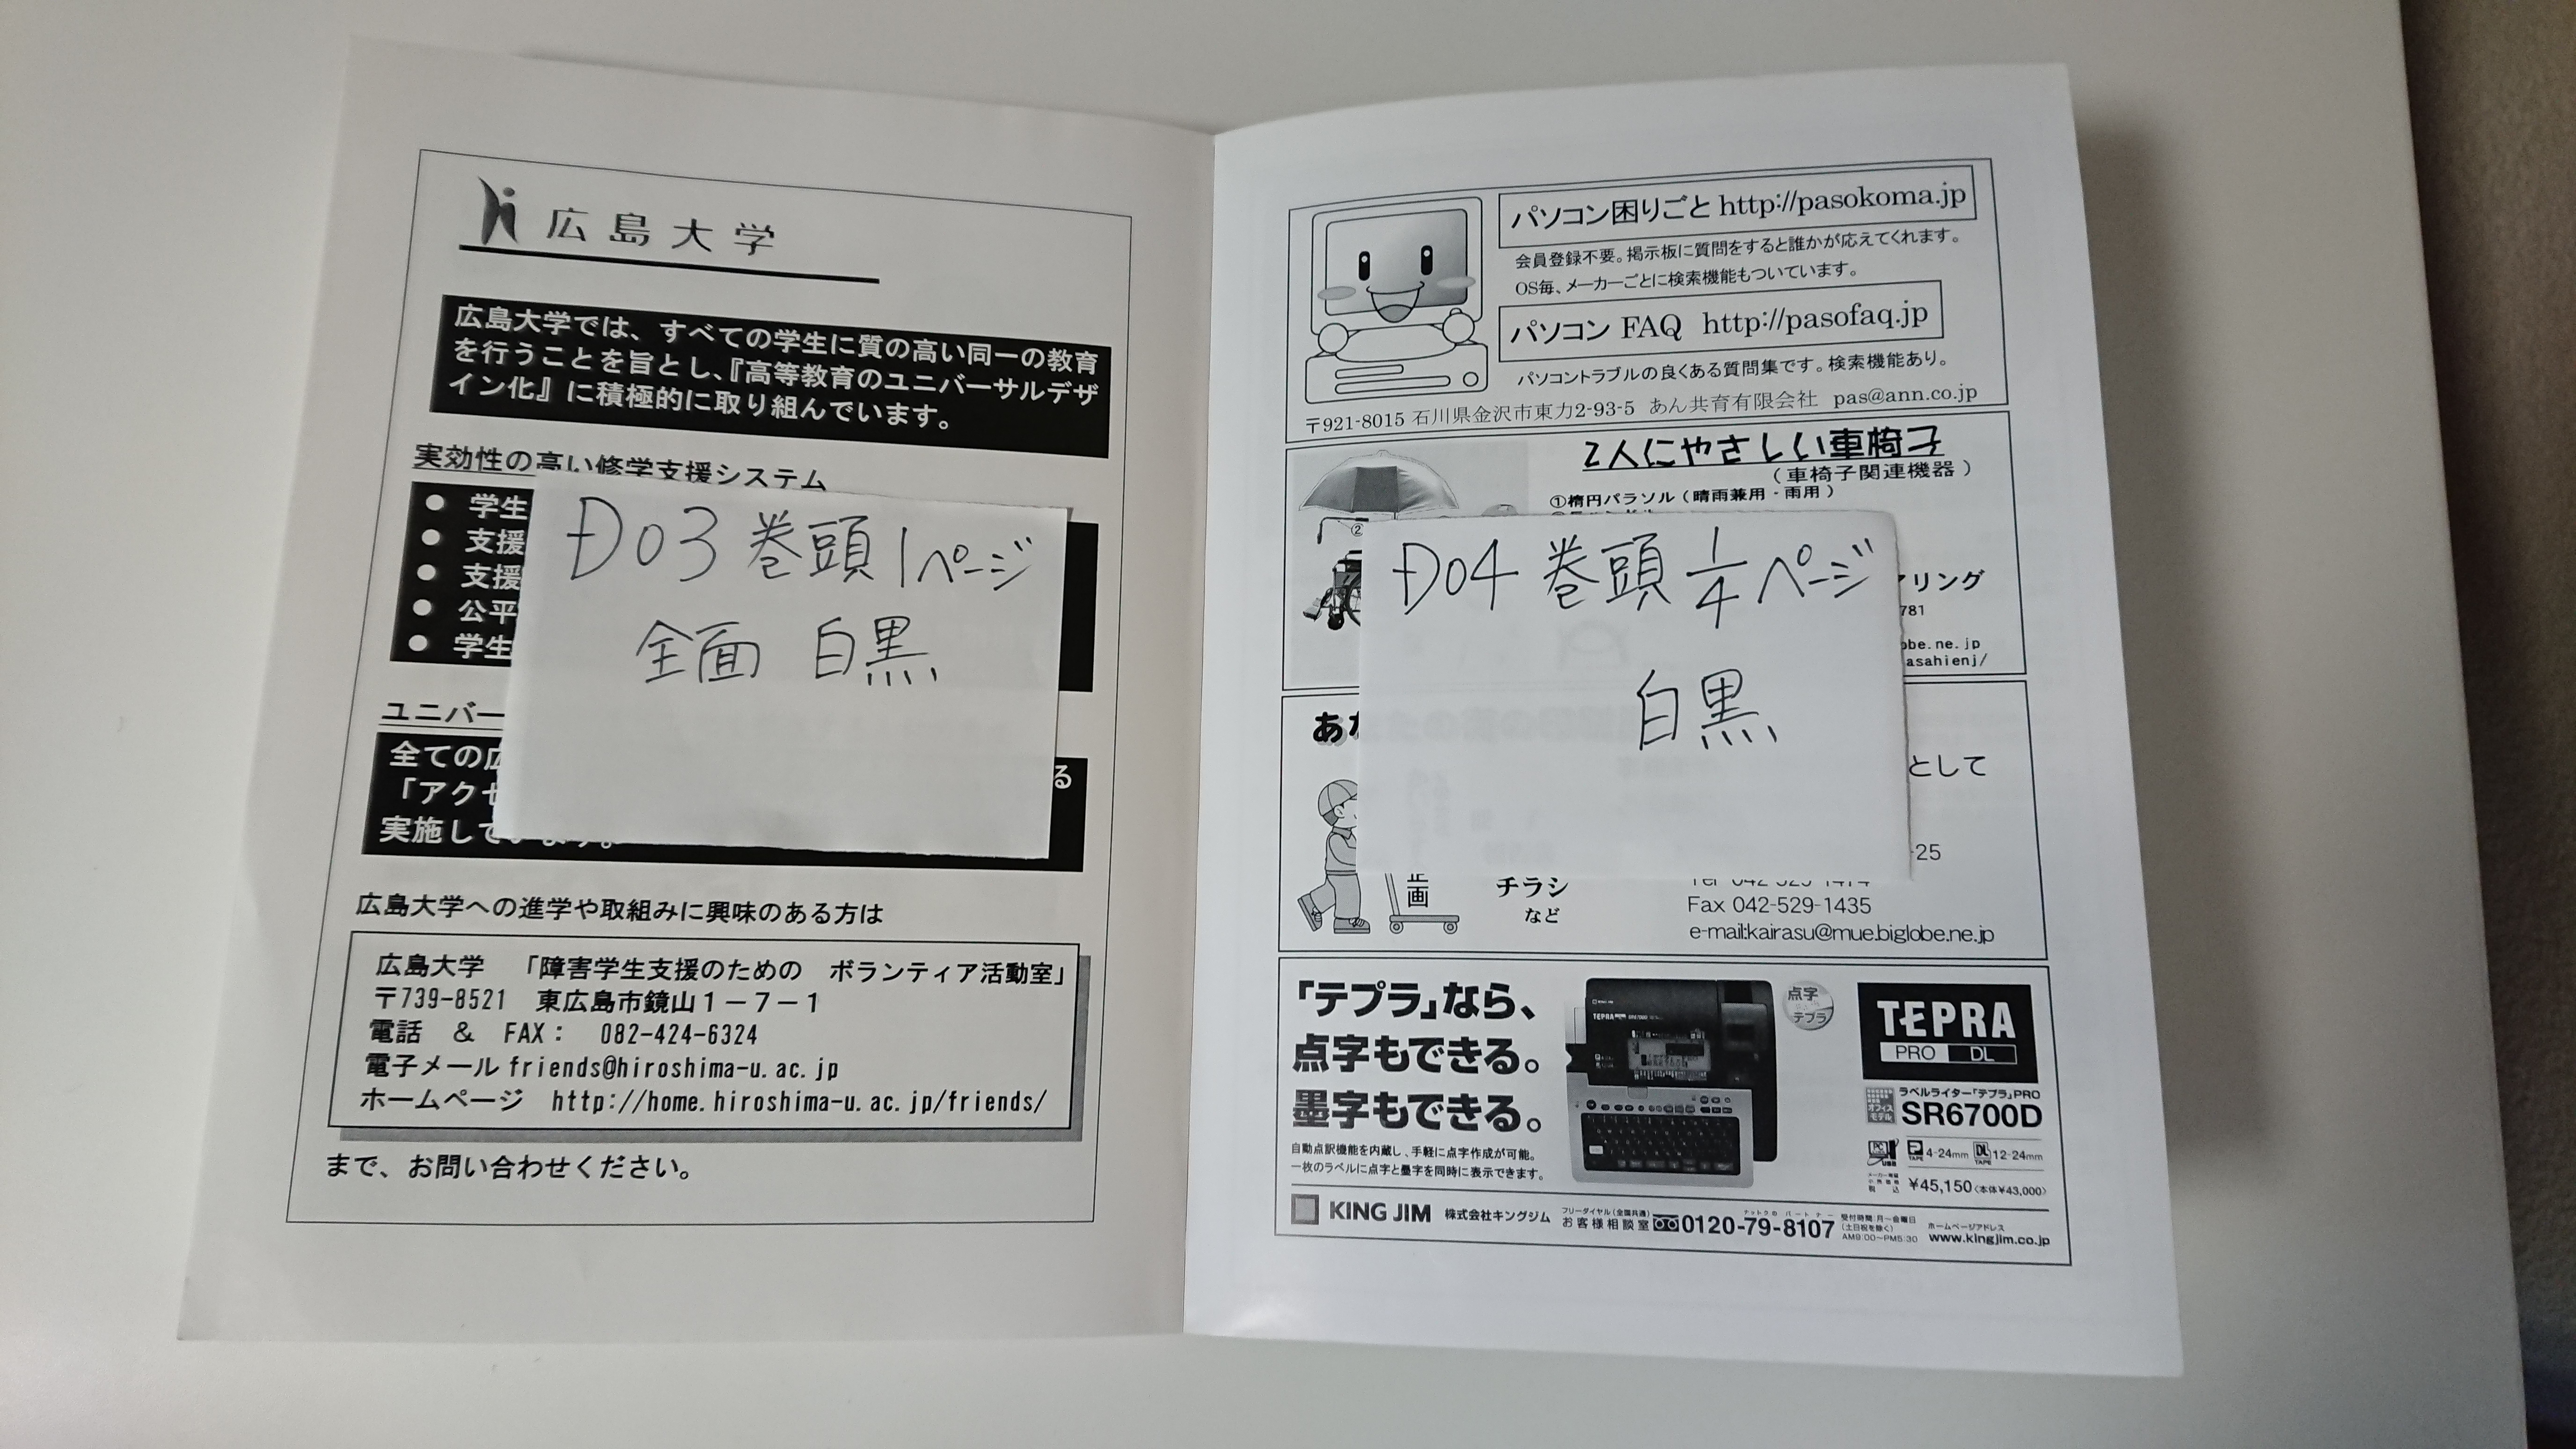 広島大学
広島大学では、すべての学生に質の高い同一の教育
を行うことを旨とし、『高等教育のユニバーサルデザ
イン化』に積極的に取り組んでいます。
実効性の高い修学支援システム
● 学生
● 支援
● 支援
● 公平
● 学生
D03 巻頭1ページ
全面 白黒
ユニバー
全ての広
る
「アクセ
実施しています。
広島大学への進学や取組みに興味のある方は
広島大学 「障害学生支援のための ボランティア活動室」
〒739-8521 東広島市鏡山1-7-1
電話 & FAX: 082-424-6324
電子メール friends@hiroshima-u.ac.jp
ホームページ http://home.hiroshima-u.ac.jp/friends/
まで、お問い合わせください。
パソコン困りごと http://pasokoma.jp
会員登録不要。掲示板に質問をすると誰かが応えてくれます。
OS毎、メーカーごとに検索機能もついています。
パソコン FAQ http://pasofaq.jp
パソコントラブルの良くある質問集です。検索機能あり。
〒921-8015 石川県金沢市東力2-93-5 あん共育有限会社 pas@ann.co.jp
2人にやさしい車椅子
(車椅子関連機器)
①楕円パラソル(晴雨兼用-雨用)
②
D04 巻頭 1/4 ページ
白黒
アリング
781
obe.ne.jp
asahienj/
あ
として
-25
企画
チラシ
など
Tel 042-525-1414
Fax 042-529-1435
e-mail:kairasu@mue.biglobe.ne.jp
「テプラ」なら、
点字もできる。
墨字もできる。
自動点訳機能を内蔵し、手軽に点字作成が可能。
一枚のラベルに点字と墨字を同時に表示できます。
点字
テプラ
TEPRA
PRO DL
ラベルライター「テプラ」PRO
オフィスモデル
SR6700D
4-24mm 12-24mm
¥45,150〈本体¥43,000〉
KING JIM 株式会社キングジム
フリーダイヤル(全国共通)
お客様相談室 0120-79-8107
受付時間:月~金曜日
(土日祝を除く)
AM9:00~PM5:30
ホームページアドレス
www.kingjim.co.jp